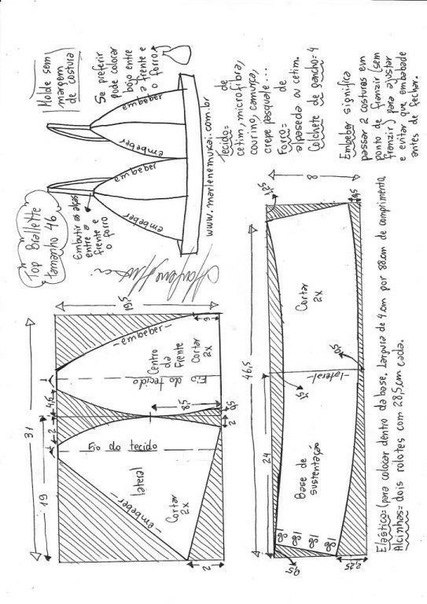 Top Brallette
tamanho 46
Molde sem
margem
de costura
Se preferir
pode colocar
bojo entre
a frente e
o forro
embeber
embeber
embeber
embeber
Embutir as alças
entre a
frente e
o forro
www.marlenemukai.com.br
Tecido = de
cetim, microfibra,
courino, camurça,
crepe pasquale...
Forro = de
alpaseda ou cetim.
Colchete de gancho = 4
Embeber significa
passar 2 costuras em
ponto de franzir (sem
franzir) para ajustar
e evitar que embabade
antes de fechar.
31
19
2
4,5
19,5
-embeber-
Centro
da
Frente
Cortar
2x
F.C.
fio do tecido
8,5
2
fio do tecido
lateral
Cortar
2x
-embeber-
2
46,5
24
1,5
8
Cortar
2x
-lateral-
Base de
sustentação
2,25
Elástico = (para colocar dentro da base. Largura de 4 cm por 88 cm de comprimento
Alcinhas = dois rolotes com 28,5 cm cada.